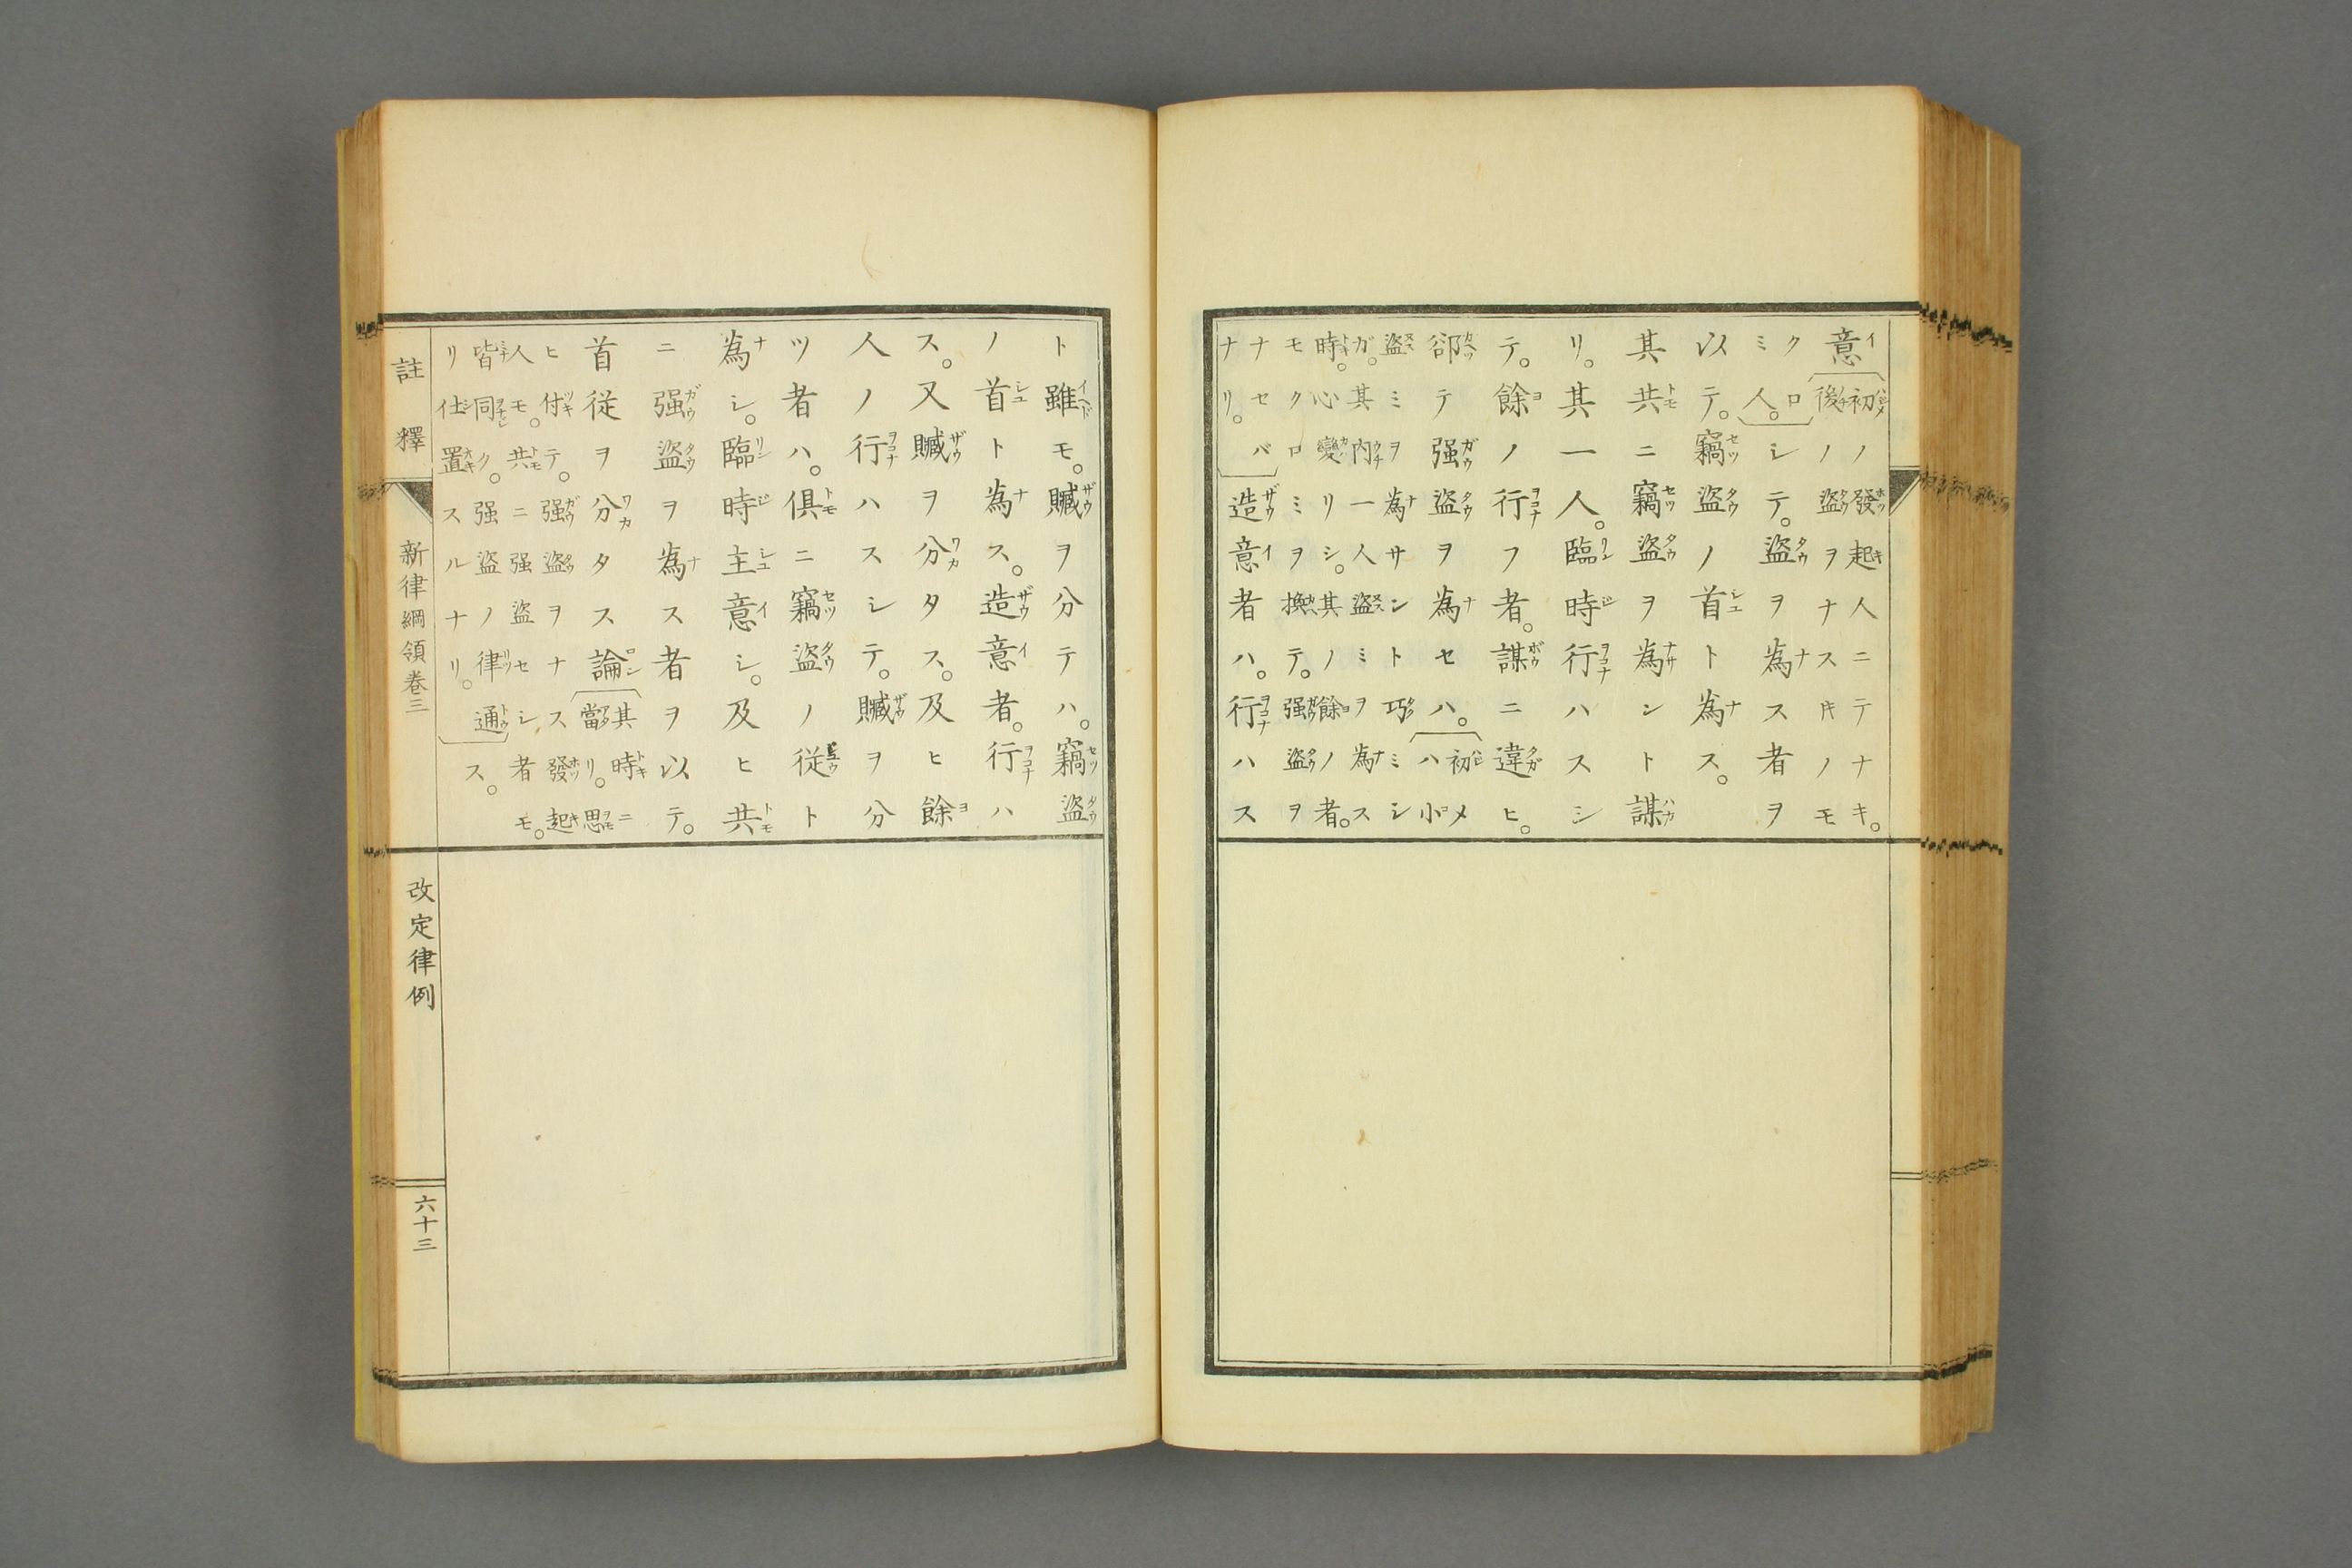 意初ノ發起人ニテナキ。
後ノ盜ヲナスキノモ
クロ
ミ人。
シテ。盜ヲ為ス者ヲ
以テ。竊盜ノ首ト為ス。
其共ニ竊盜ヲ為ント謀
リ。其一人。臨時行ハスシ
テ。餘ノ行フ者。謀ニ違ヒ。
郤テ强盜ヲ為セハ。初メ
ハ小
盜ミヲ為サント巧ミシ
ガ。其內一人盜ミヲ為ス
時。心變リシ。其ノ餘ノ者。
モクロミヲ撫テ。强盜ヲ
ナセバ
ナリ。
造意者ハ。行ハス
ト雖モ。贓ヲ分テハ。竊盜
ノ首ト為ス。造意者。行ハ
ス。又贓ヲ分タス。及ヒ餘
人ノ行ハスシテ。贓ヲ分
ツ者ハ。俱ニ竊盜ノ従ト
為シ。臨時主意シ。及ヒ共
ニ强盜ヲ為ス者ヲ以テ。
首従ヲ分タス論其時ニ
當リ。思
ヒ付テ。强盜ヲナス發起
人モ。共ニ强盜セシ者モ。
皆同ク。强盜ノ律通
リ仕置スルナリ。
ス。
註釋 新律綱領卷三 改定律例 六十三